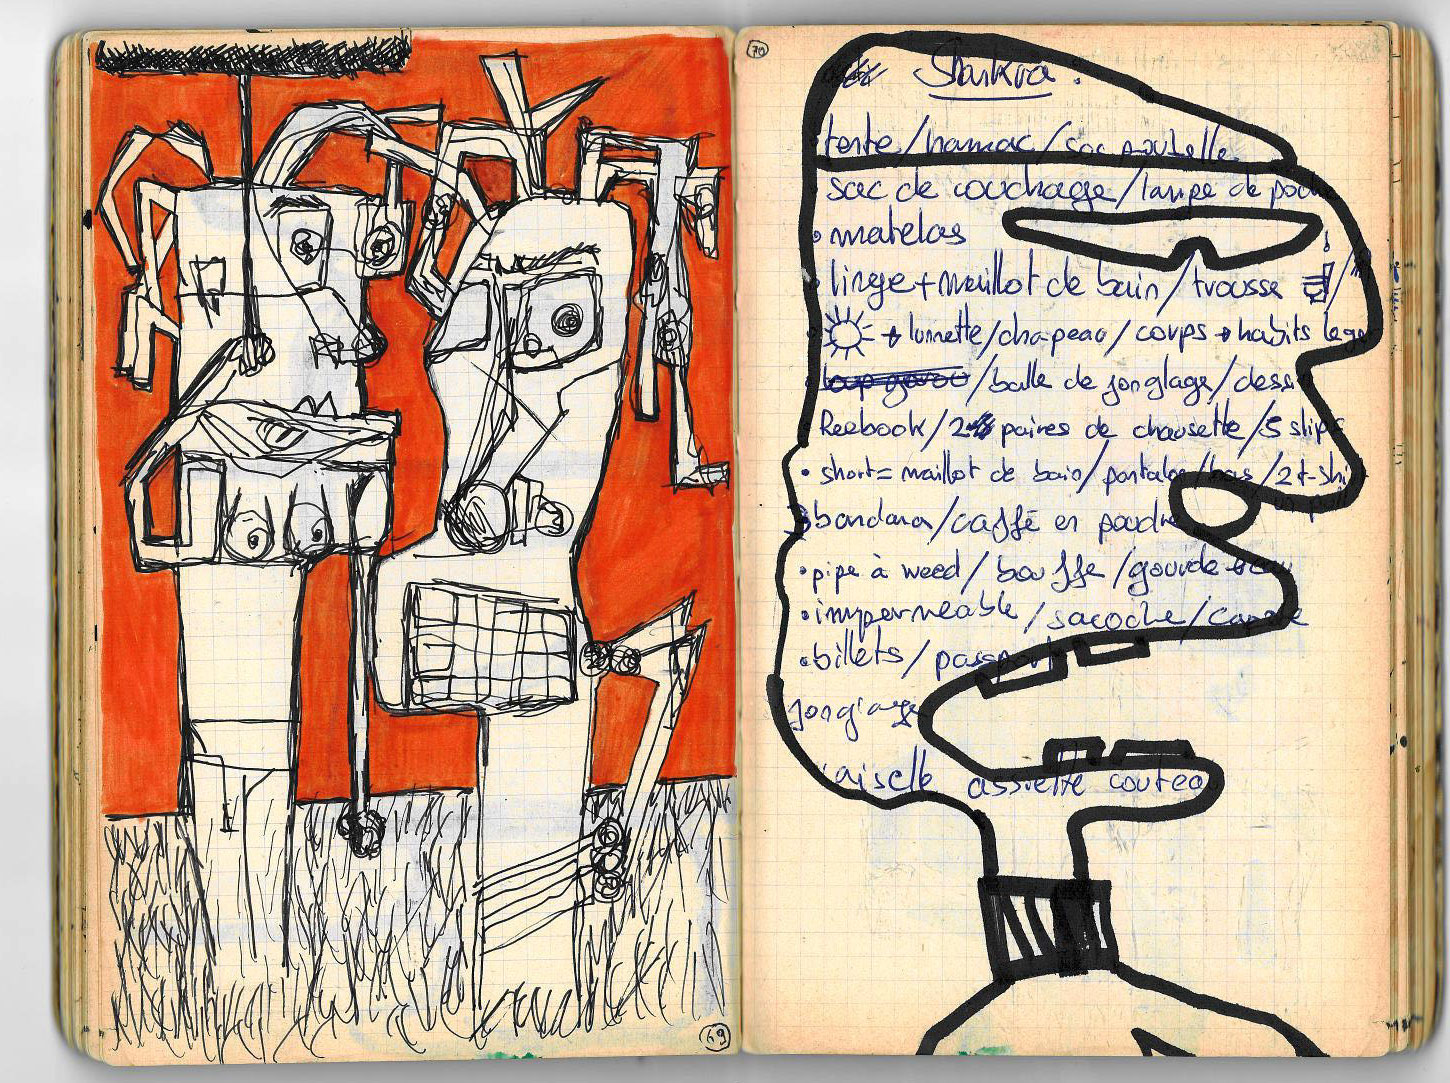 70
Shankra :
• tente / hamac / sac poubelle
• sac de couchage / lampe de poche
• matelas
• linge + maillot de bain / trousse
+ lunette / chapeau / coups + habits
/ balle de jonglage / dessin
Reebook / 2 paires de chaussette / 5 slips
• short = maillot de bain / pantalon / bas / 2 t-shi
• bandana / caffé en poudre
• pipe à weed / bouffe / gourde
• imperméable / sacoche /
• billets / passport
jonglage
vaiselle assiette couteau
69